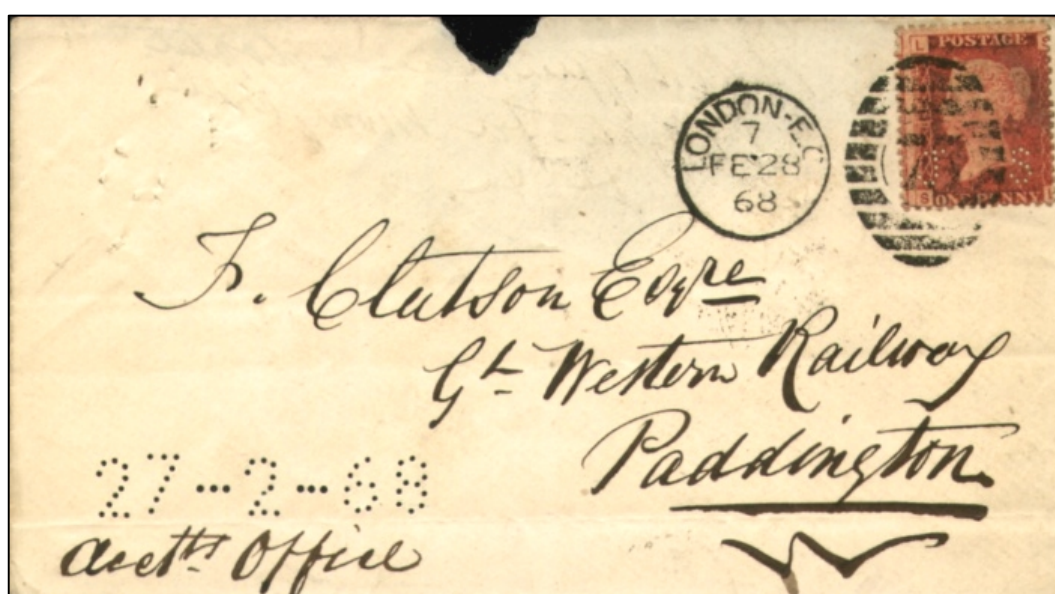 L POSTAGE
LONDON-E.C
7
FE 28
68
S ONE PENNY
F. Clutson Esqre
Gt Western Railway
Paddington.
27-2-68
Acctts Office